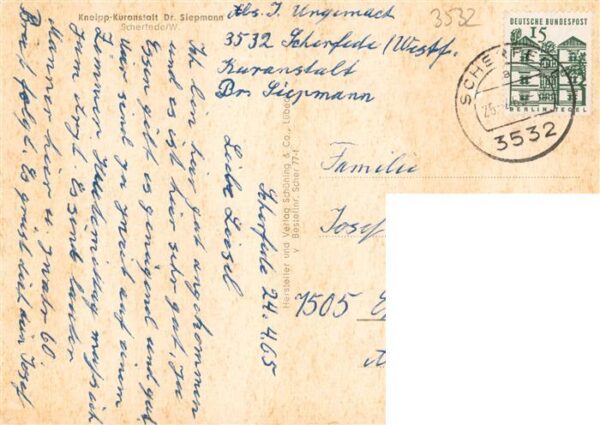 Kneipp-Kuranstalt Dr. Siepmann
Scherfede/W.
Abs. J. Ungemach
3532 Scherfede/Westf.
Kuranstalt
Dr. Siepmann
3532
DEUTSCHE BUNDESPOST
15
BERLIN-TEGEL
SCHERFEDE
3532
Familie
Josef
7505
Hersteller und Verlag Schöning & Co., Lübeck
Bestellnr. Scher 77-f
Scherfede 24.4.65
Liebe Liesel
Ich bin hier gut angekommen
und es ist hier sehr gut, zu
Essen gibt es genügend und gut
Wir sind zu zweit auf einem
Zimmer, Nachmittag muß ich
zum Arzt. Es sind lauter
Männer hier u. zwar 60.
Brief folgt. Es grüst dich dein Josef